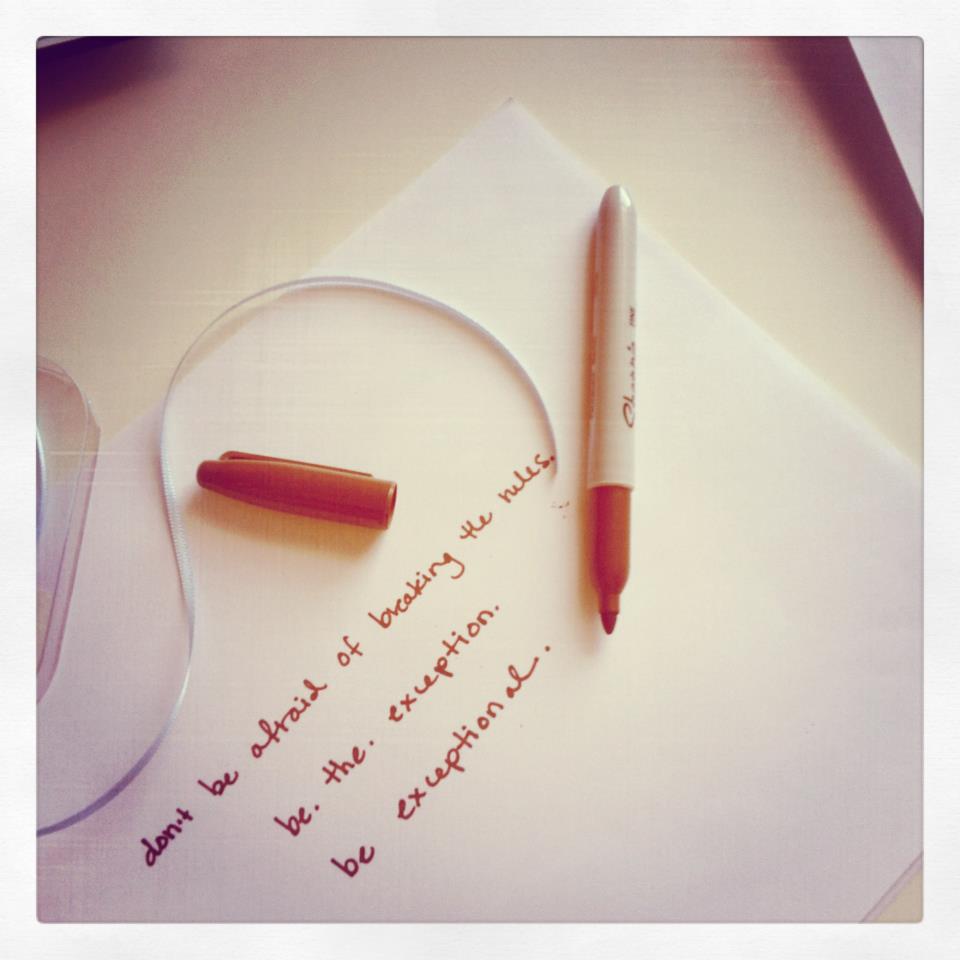 don't be afraid of breaking the rules.
be. the. exception.
be exceptional.
Sharpie